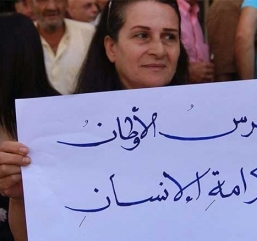 رسُ الأوطانُ
رامةِ الإنسانِ